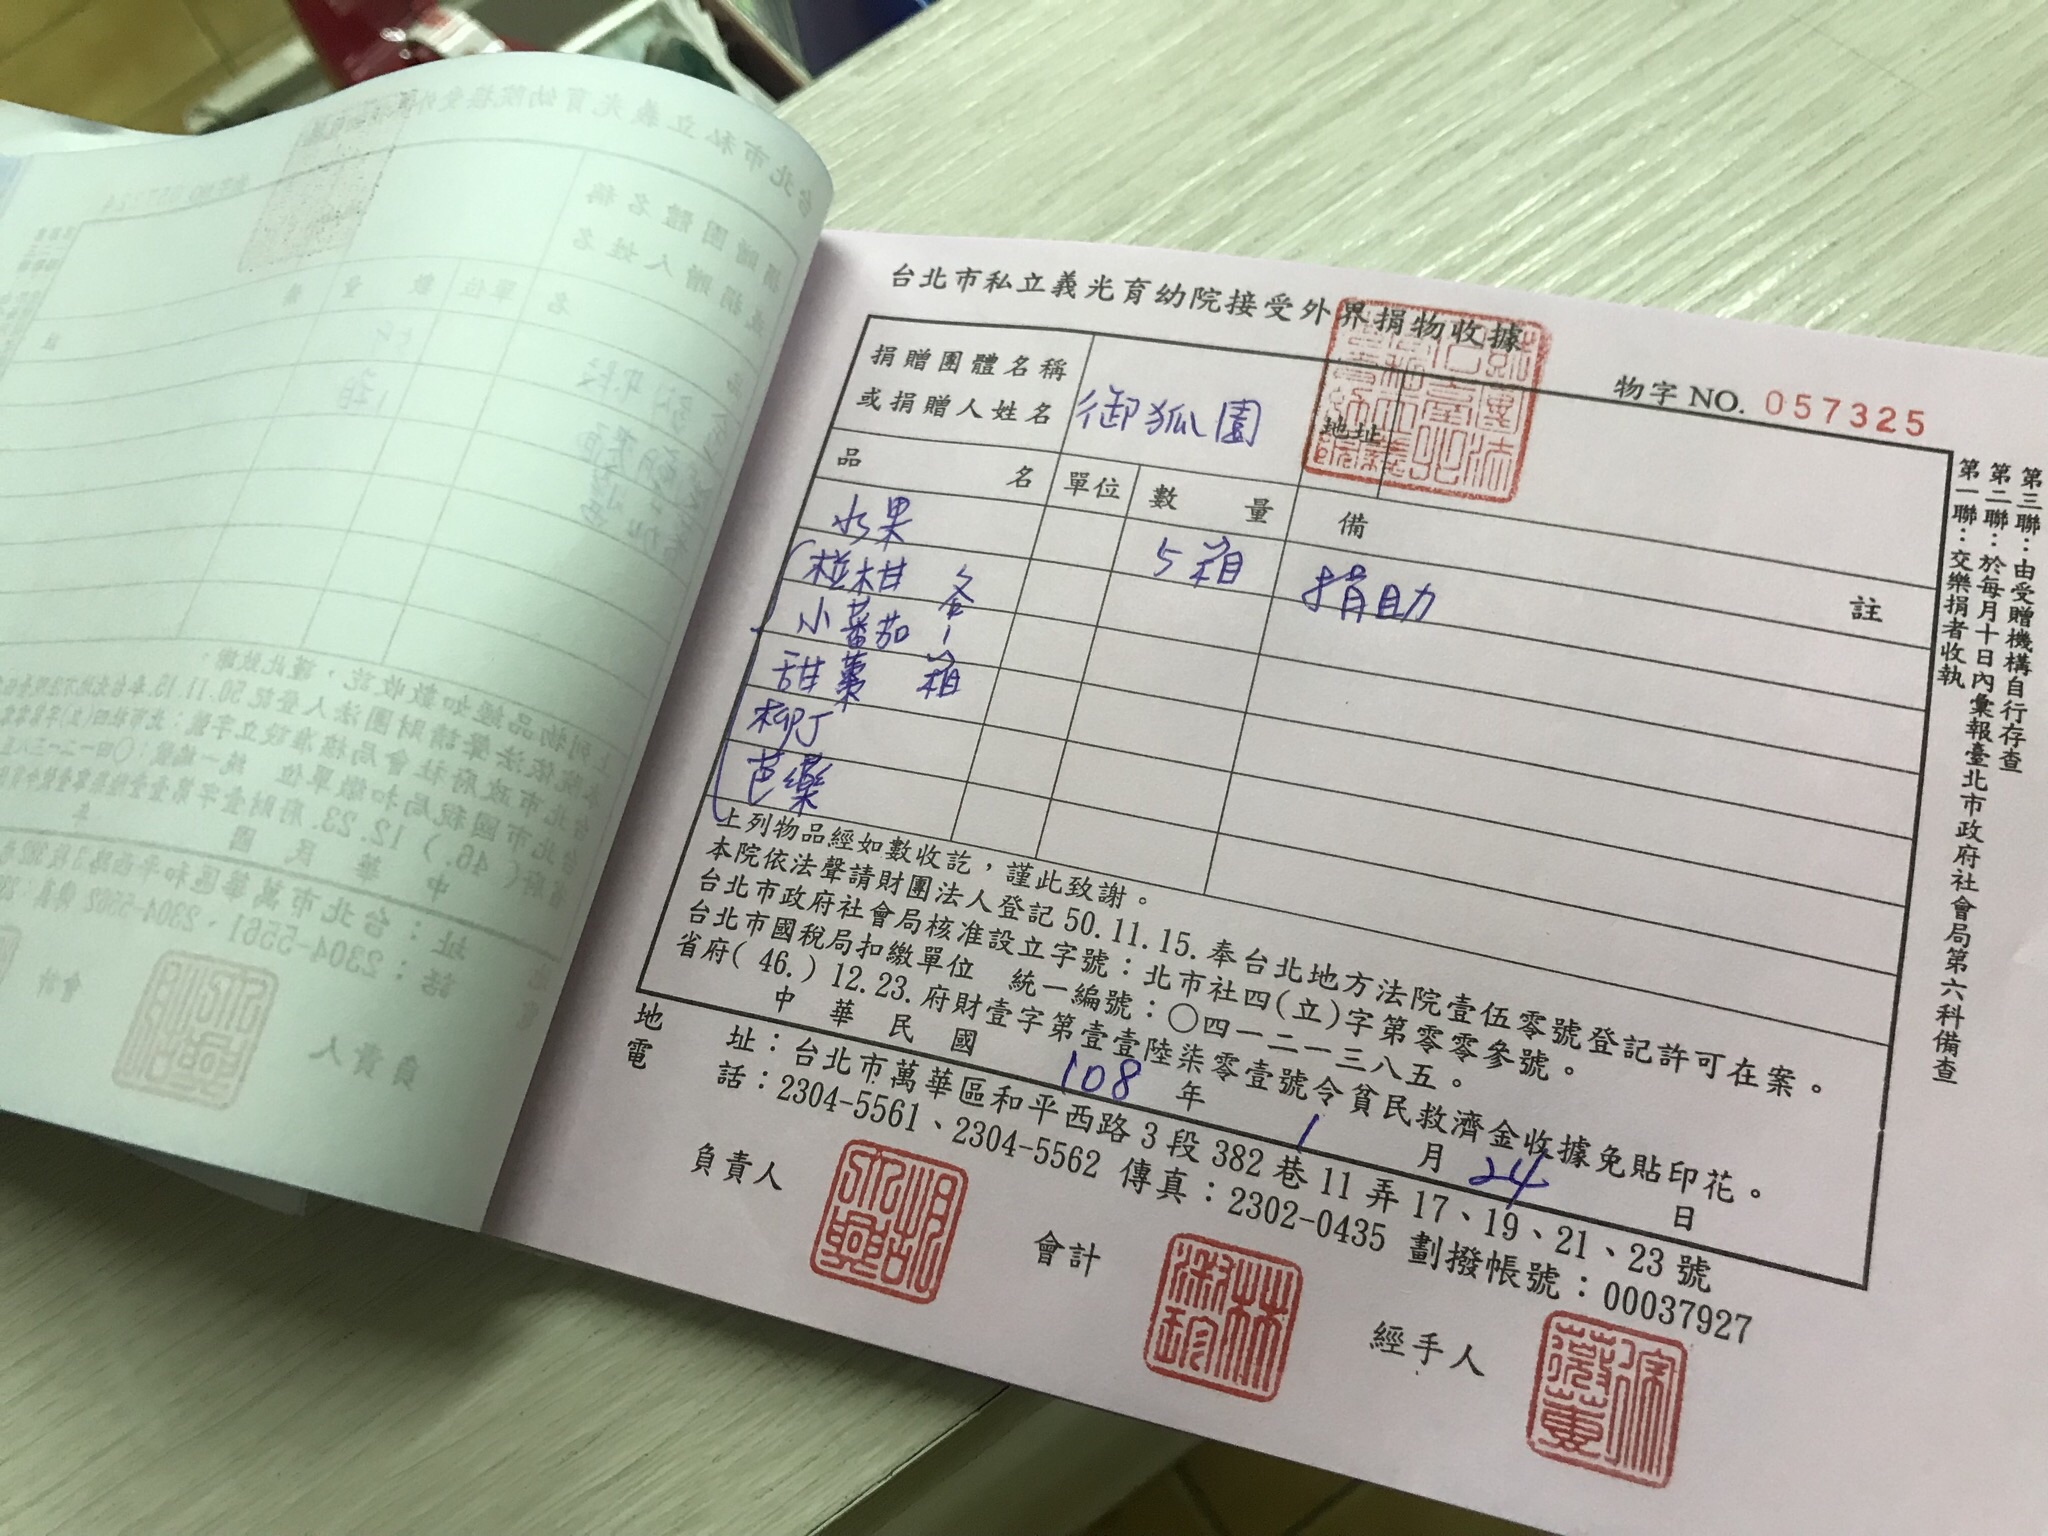 台北市私立義光育幼院接受外界捐物收據
物字 NO. 057325
捐贈團體名稱
或捐贈人姓名
御狐園
地址
品名 單位 數量 備註
水果 5箱 捐助
椪柑 各
小蕃茄 1
甜棗 箱
柳丁
芭藥
上列物品經如數收訖，謹此致謝。
本院依法聲請財團法人登記50.11.15.奉台北地方法院壹伍零號登記許可在案。
台北市政府社會局核准設立字號：北市社四(立)字第零零參號。
台北市國稅局扣繳單位 統一編號：〇四一二一三八五。
省府( 46.) 12.23.府財壹字第壹壹陸柒零壹號令貧民救濟金收據免貼印花。
中華民國 108 年 1 月 24 日
地址：台北市萬華區和平西路3段382巷11弄17、19、21、23號
電話：2304-5561、2304-5562 傳真：2302-0435 劃撥帳號：00037927
負責人
會計
林淑珍
經手人
第三聯：由受贈機構自行存查
第二聯：於每月十日內彙報臺北市政府社會局第六科備查
第一聯：交樂捐者收執